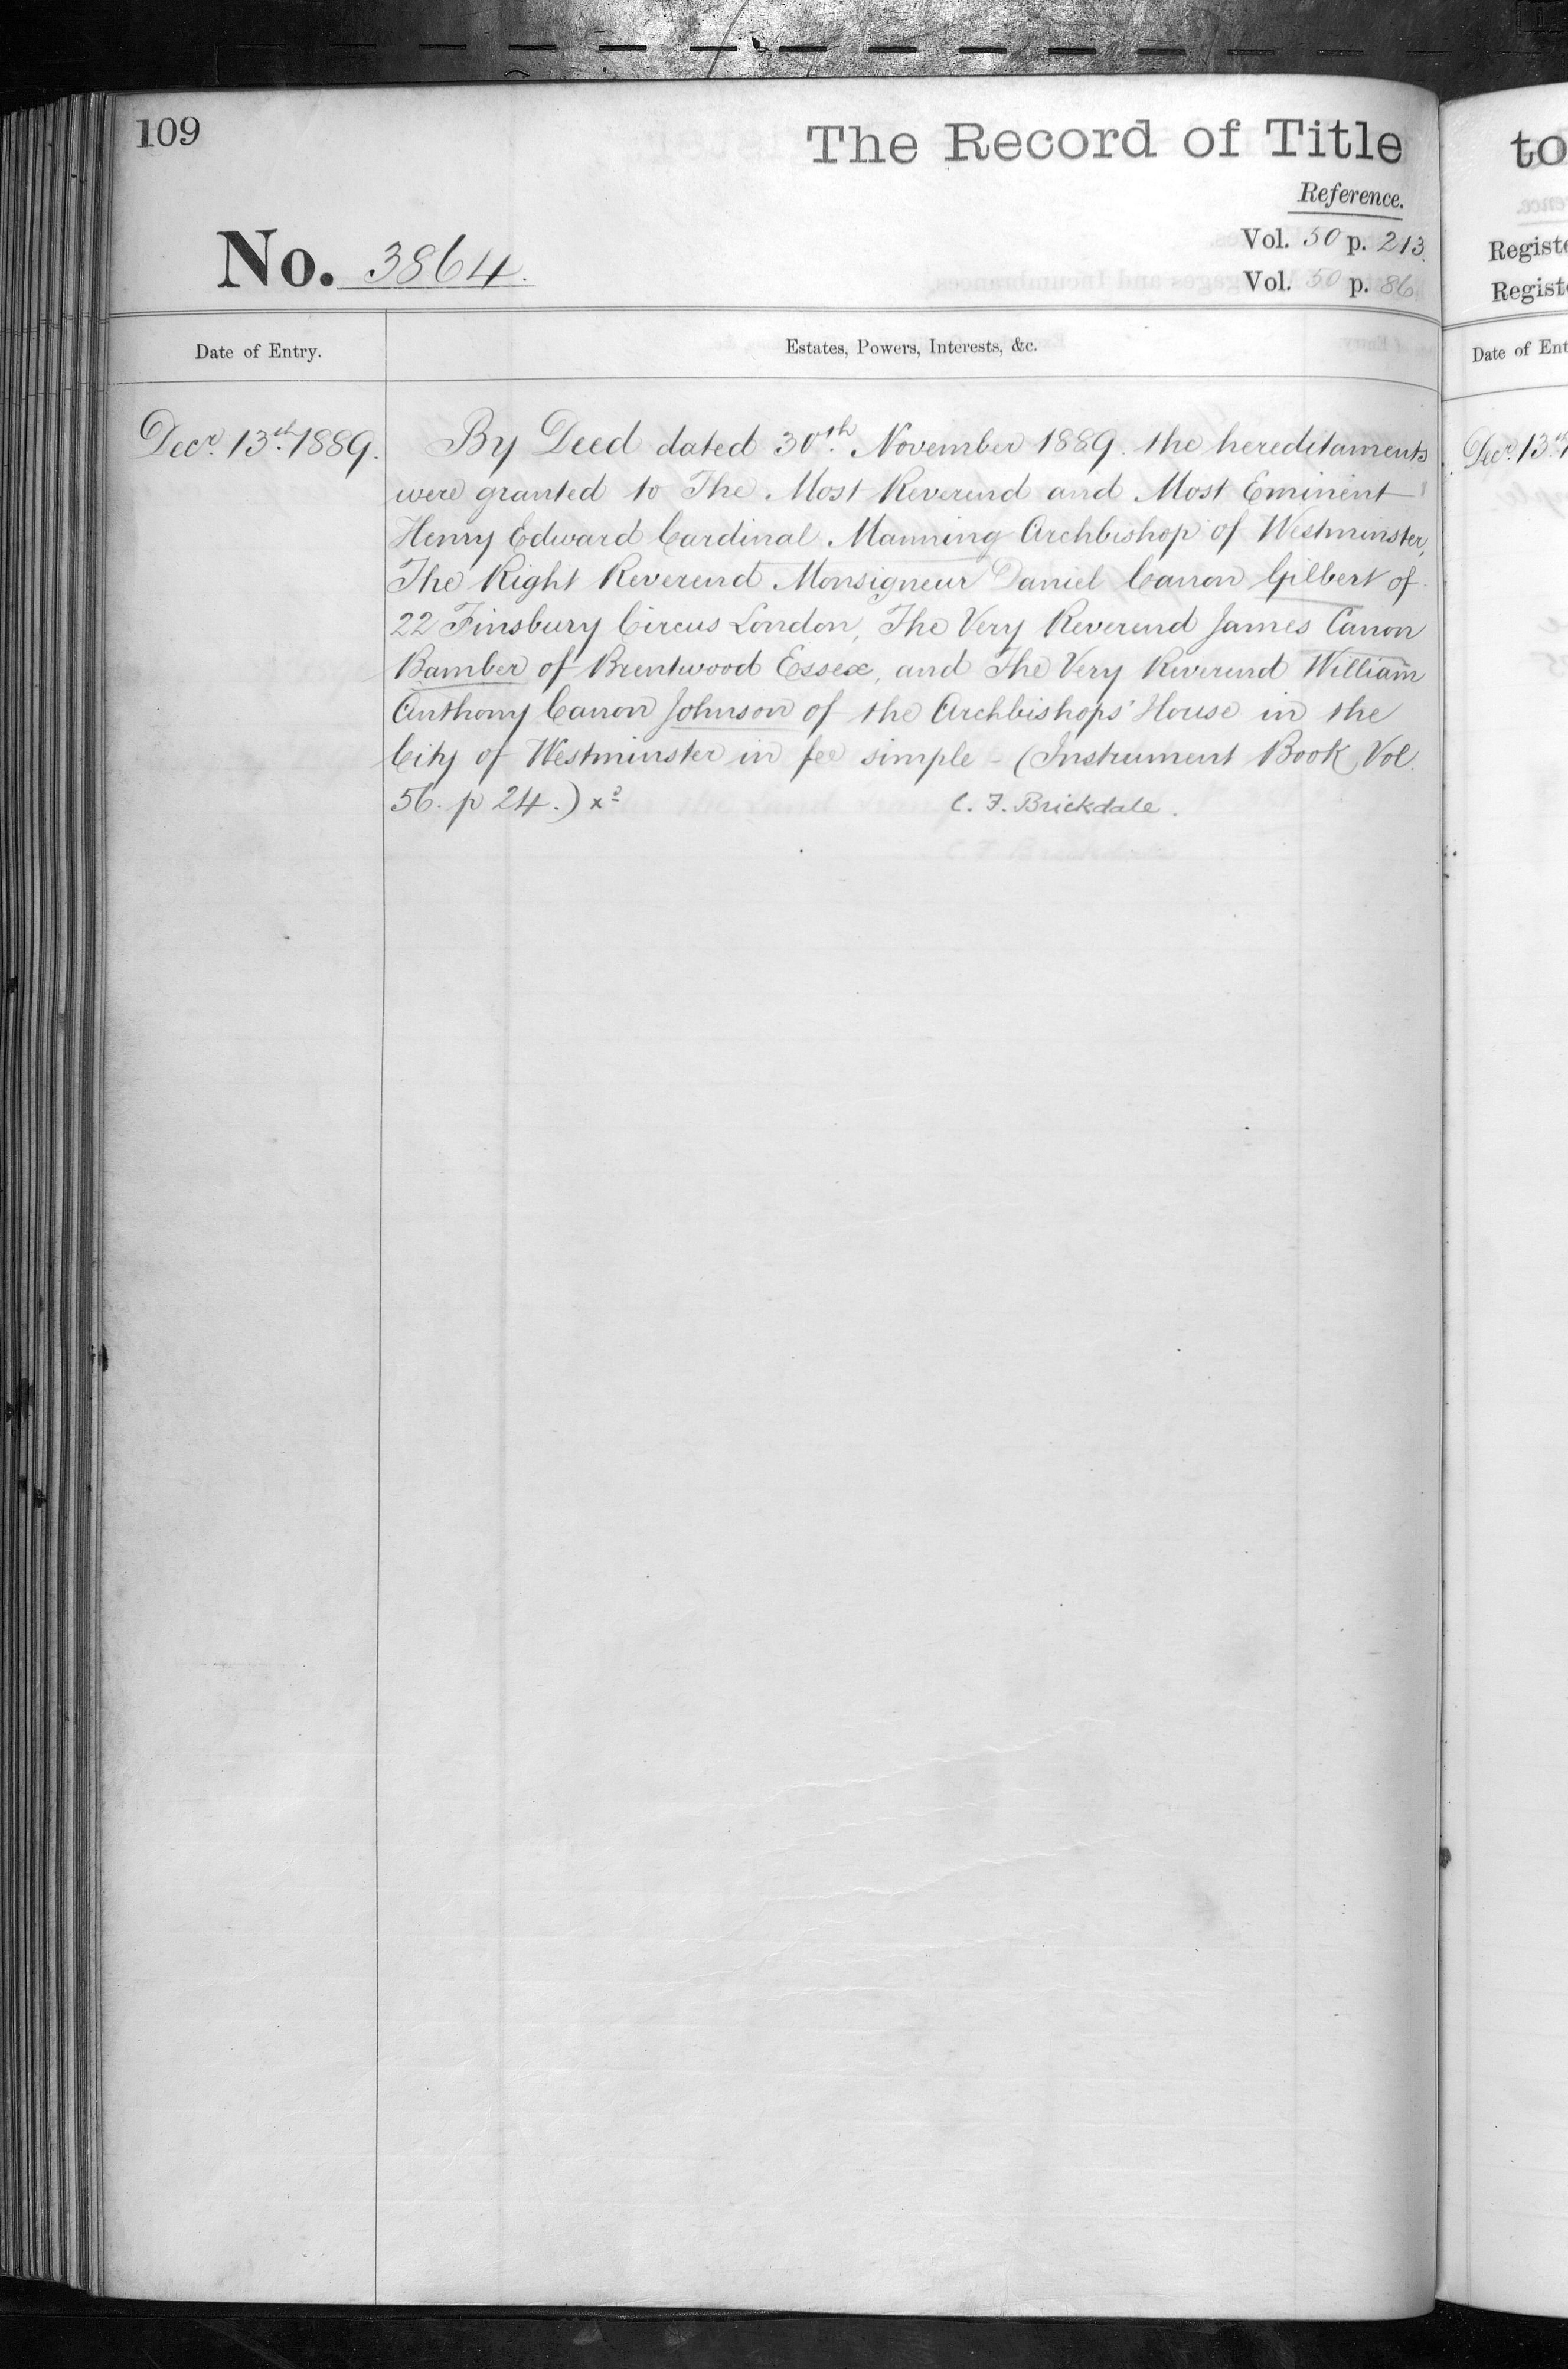 109
The Record of Title
Reference.
No. 3864.
Vol. 50 p. 213.
Vol. 50 p. 86
Date of Entry.
Estates, Powers, Interests, &c.
Decr. 13th. 1889.
By Deed dated 30th. November 1889. the hereditaments
were granted to The Most Reverend and Most Eminent
Henry Edward Cardinal Manning Archbishop of Westminster,
The Right Reverend Monsigneur Daniel Canon Gilbert of
22 Finsbury Circus London, The Very Reverend James Canon
Bamber of Brentwood Essex, and The Very Reverend William
Anthony Canon Johnson of the Archbishops' House in the
City of Westminster in fee simple - (Instrument Book, Vol.
56. p 24.)
C. F. Brickdale.
to
Registe
Regist
Date of Ent
Decr. 13th